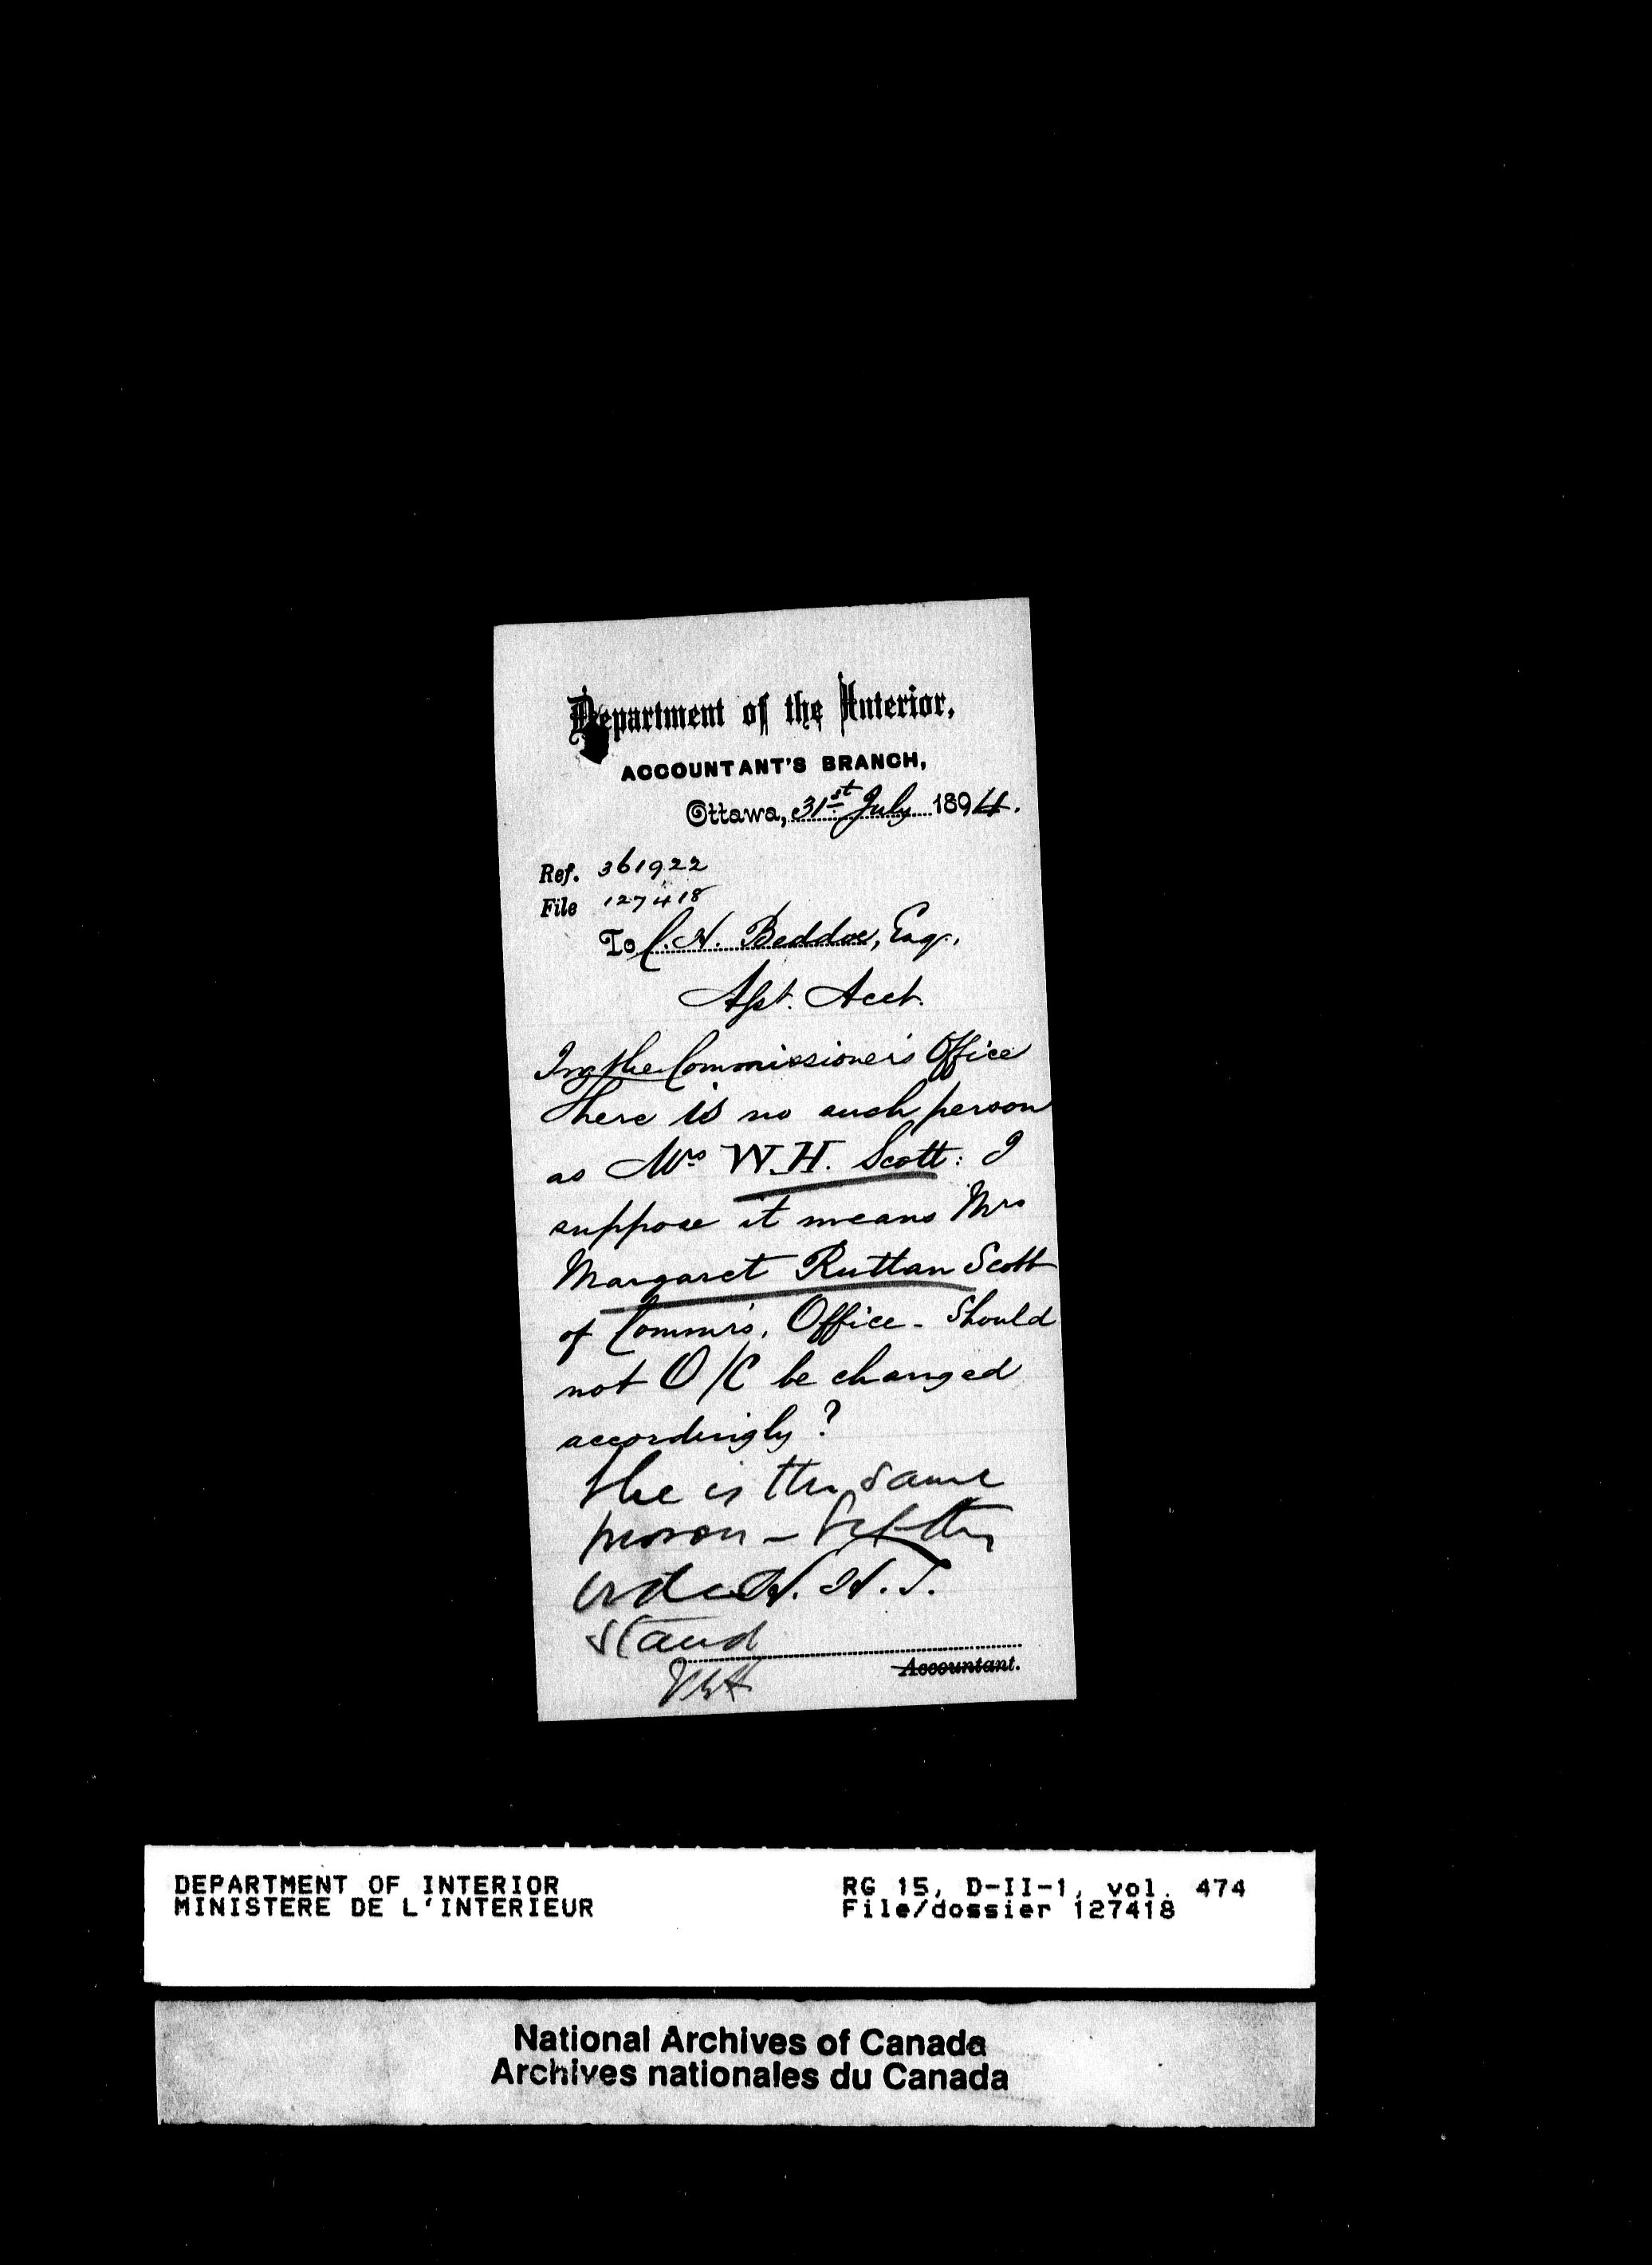 Department of the Interior,
ACCOUNTANT'S BRANCH,
Ottawa, 31st July 1894.
Ref. 361922
File 127418
To C. H. Beddoe, Esq.,
Asst. Acct.
In the Commissioner's Office
there is no such person
as Mrs W. H. Scott: I
suppose it means Mrs
Margaret Ruttan Scott
of Commrs. Office - Should
not O/C be changed
accordingly?
She is the same
person - let the
order H. H. T.
stand
Accountant.
DEPARTMENT OF INTERIOR
MINISTERE DE L'INTERIEUR
RG 15, D-II-1, vol. 474
File/dossier 127418
National Archives of Canada
Archives nationales du Canada